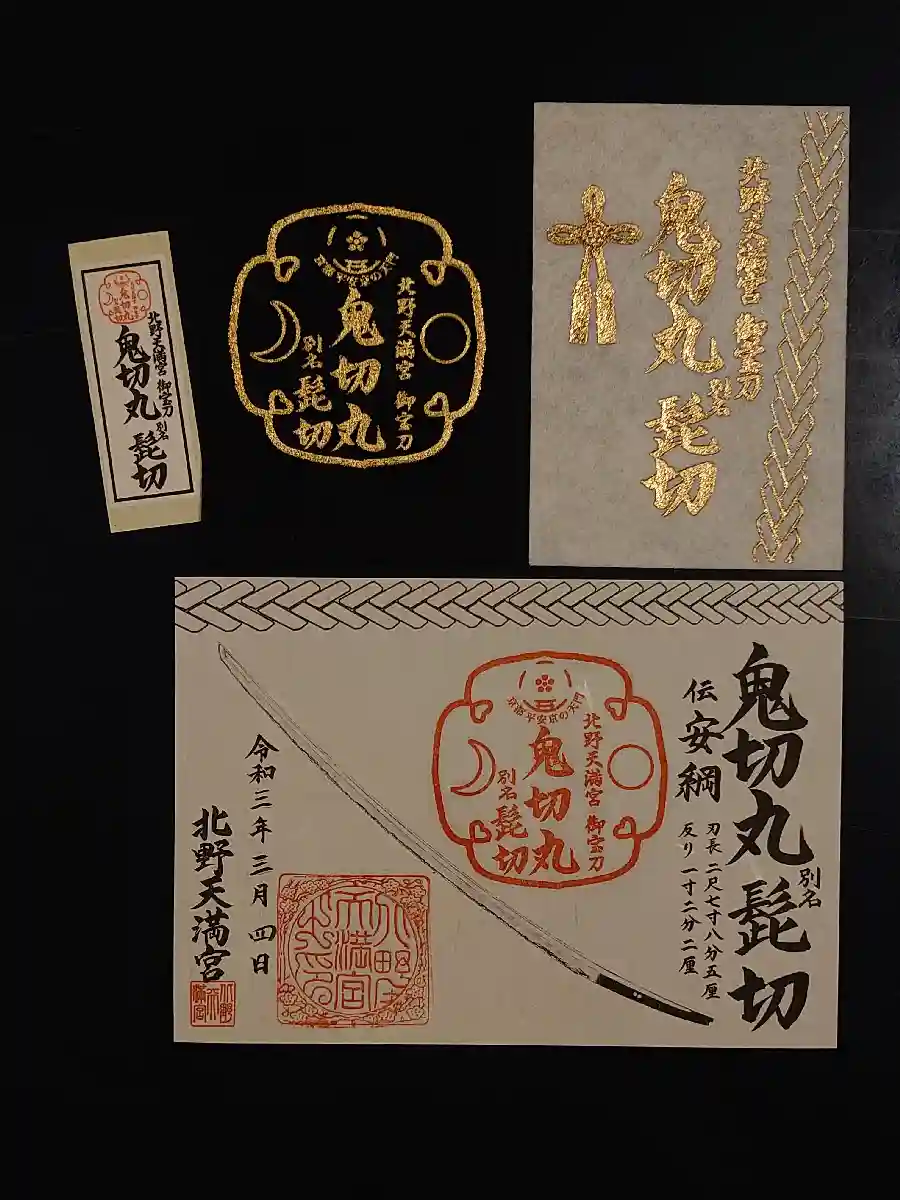 北野天満宮 御宝刀
鬼切丸 別名 髭切
鬼切丸
別名 髭切
北野天満宮 御宝刀
鬼切丸
別名
髭切
北野天満宮 御宝刀
鬼切丸 別名 髭切
鬼切丸 別名 髭切
伝 安綱
刃長 二尺七寸八分五厘
反り 一寸二分二厘
平安京の天門
北野天満宮 御宝刀
鬼切丸
別名
髭切
令和三年三月四日
北野天満宮